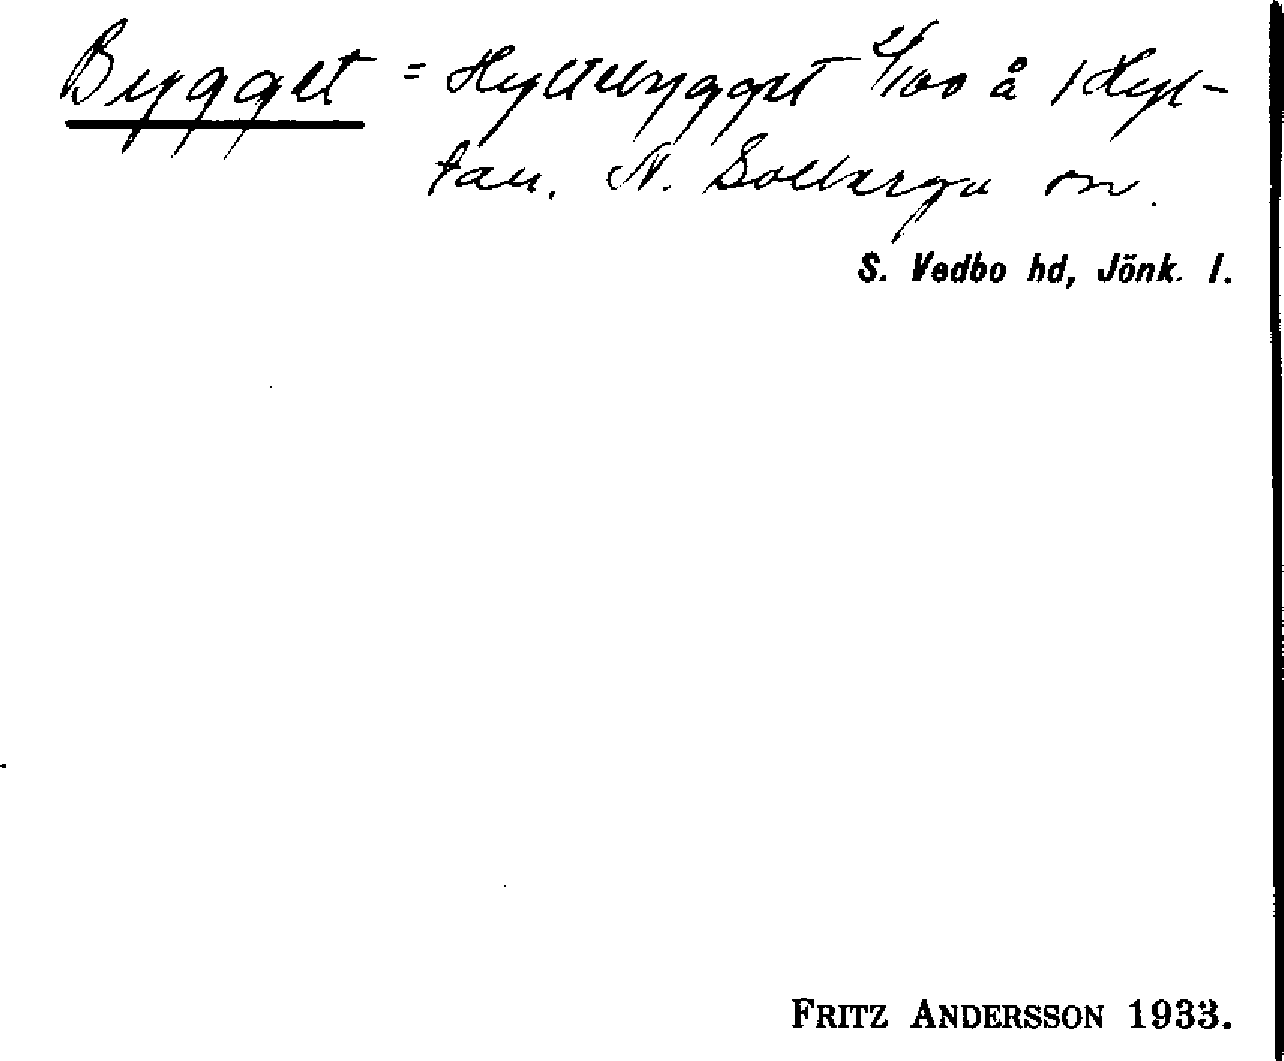 Bygget = Hyltebygget 2/100 å 1 Hyl-
tan. N. Solberga sn.
S. Vedbo hd, Jönk. l.
FRITZ ANDERSSON 1933.